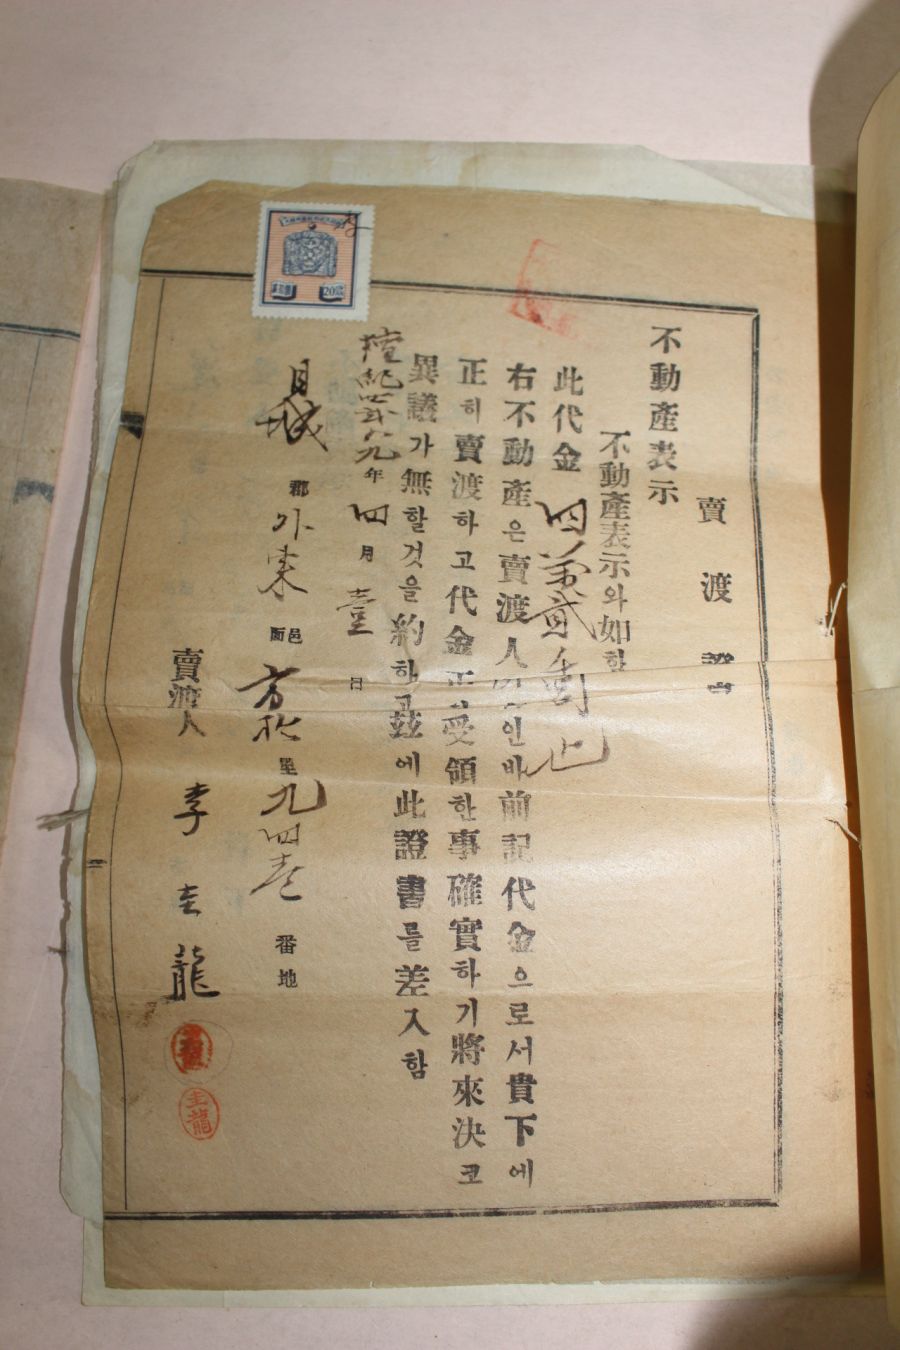 賣渡證書
不動產表示
不動產表示와如한
此代金 四萬貳千圜也
右不動產은賣渡人 인바前記代金으로서貴下에
正히賣渡하고代金正히受領한事確實하기將來決코
異議가無할것을約하고玆에此證書를差入함
檀紀 九年四月壹日
郡外東邑面 里九四壱番地
賣渡人 李圭龍
圭龍
20